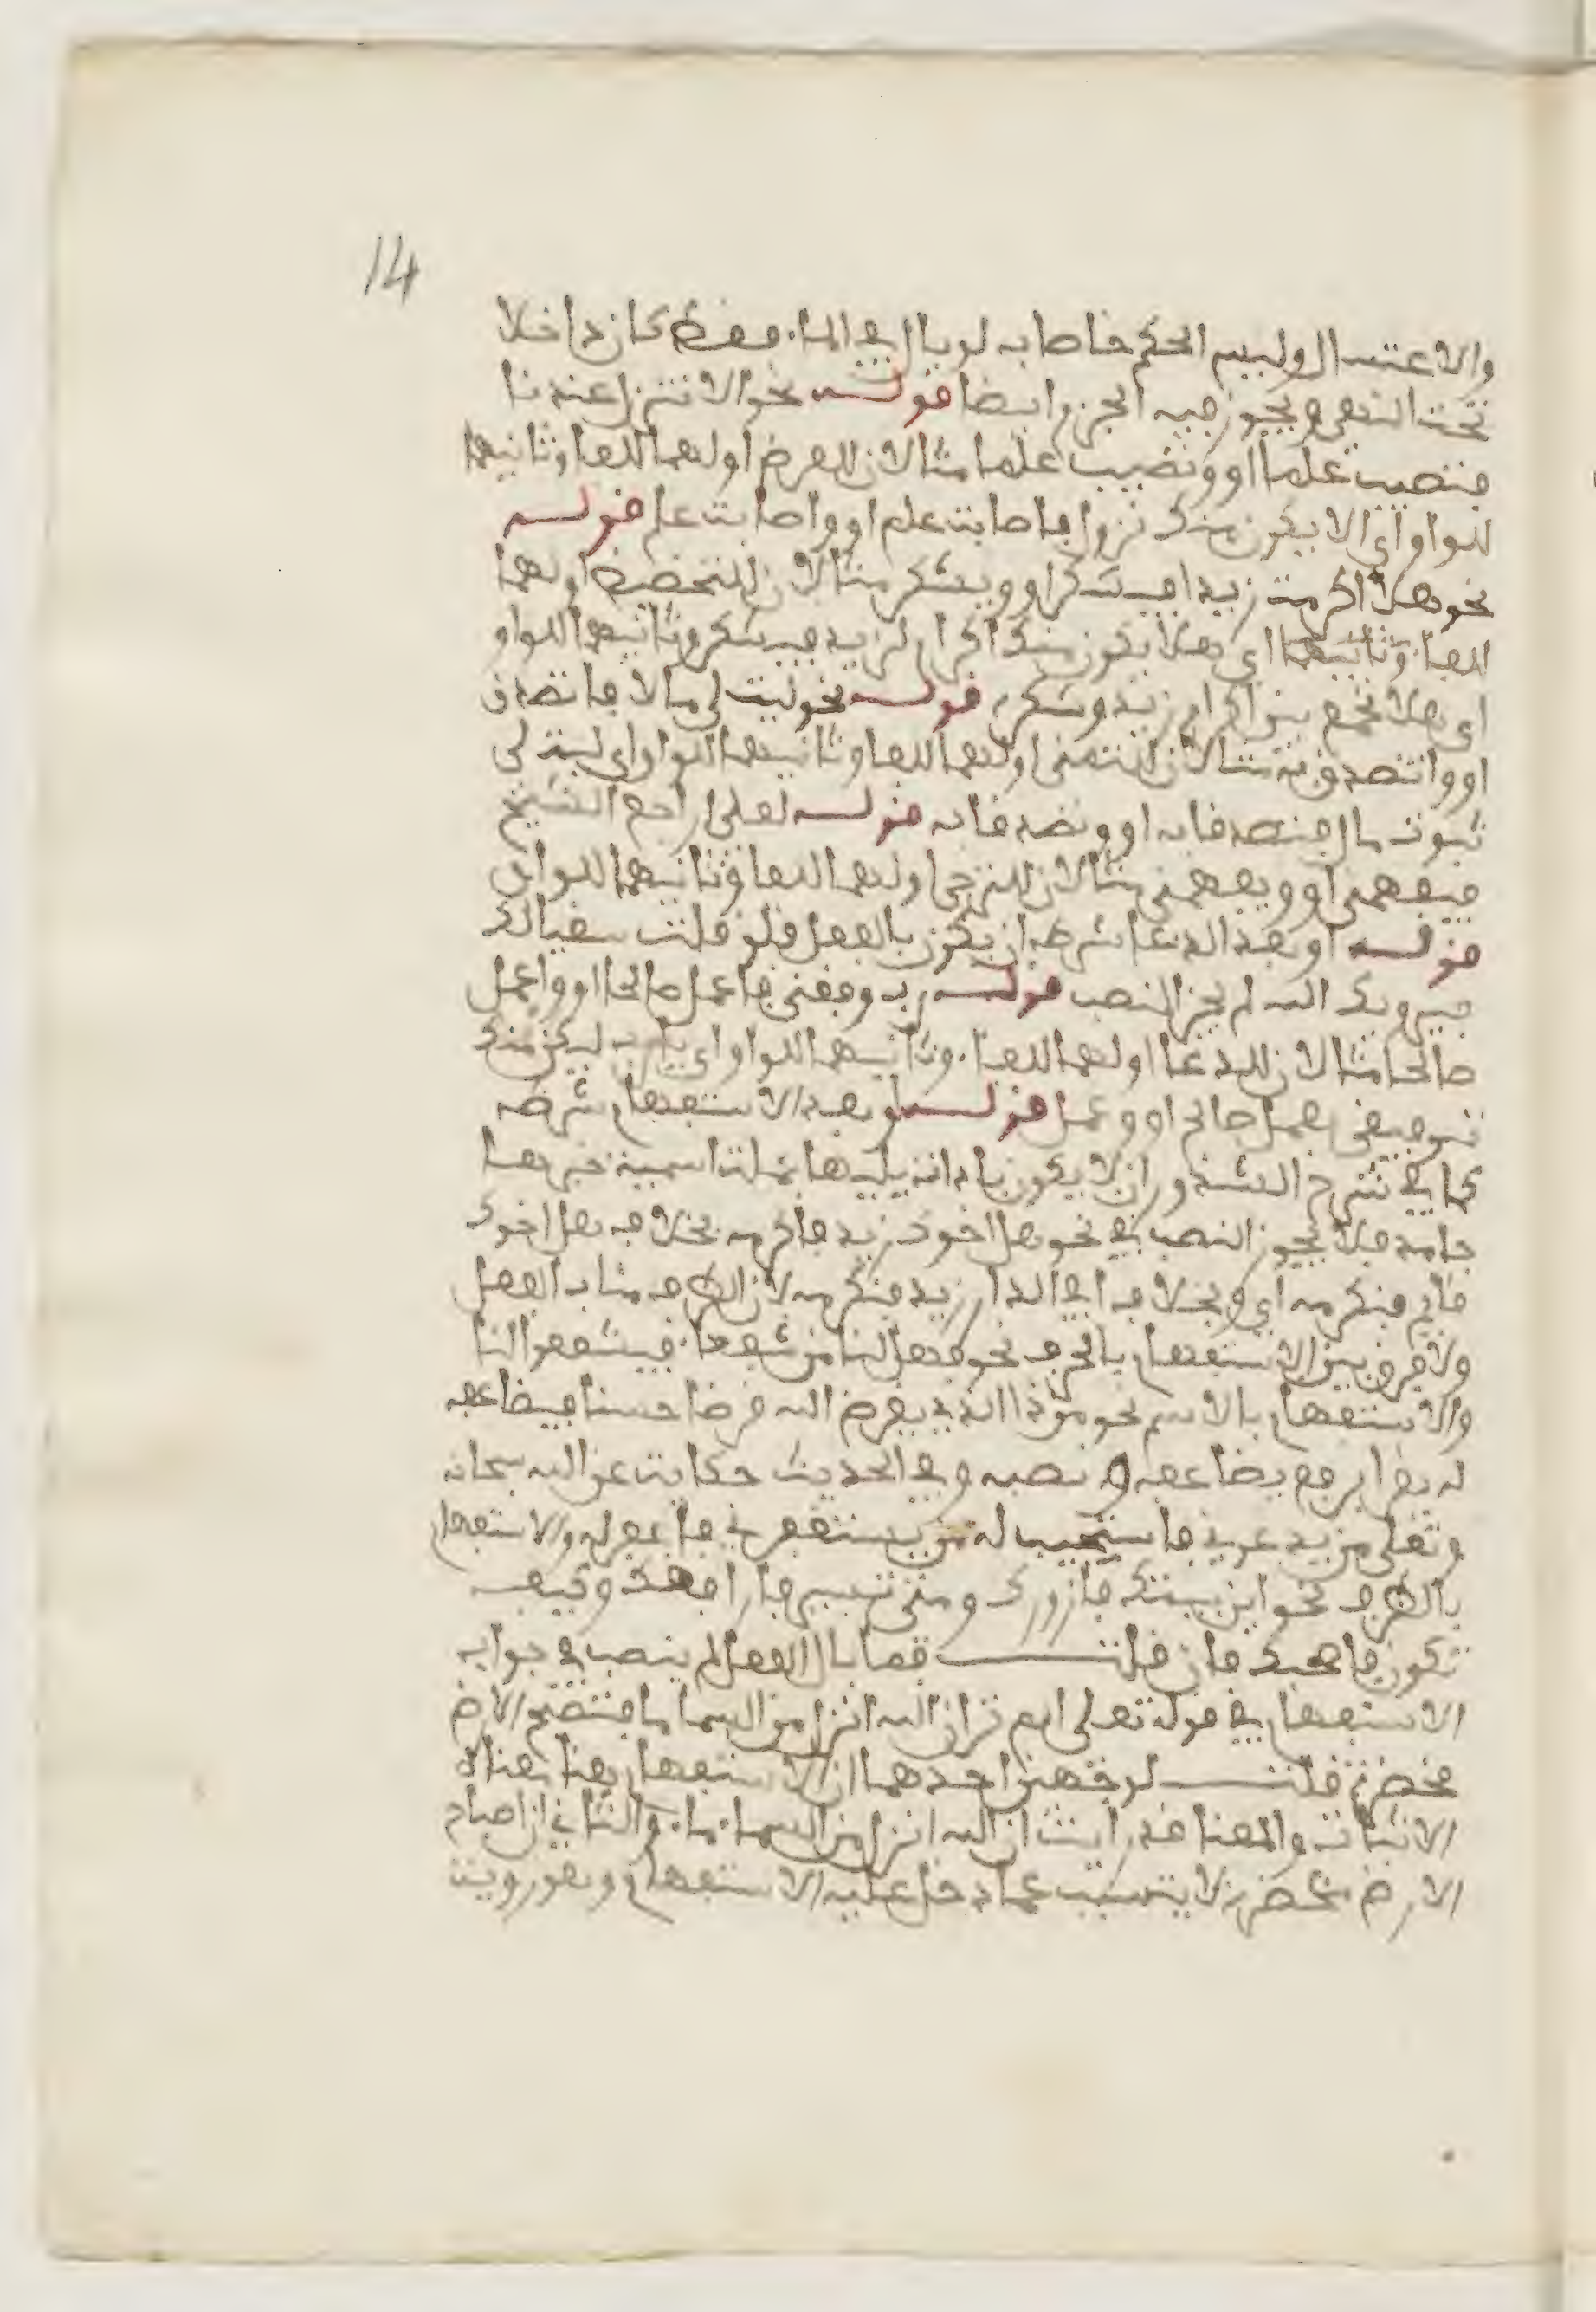 14
والاغتسال وليس الحكم خاصا به لو بال في الماء فقط كان داخلا
تحت النهي ويجوز فيه الجزم ايضا قوله نحو الا تنزل عندنا
فتصيب علما او وتصيب علما مثالان للعرض اولهما للفا وثانيهما
للواو اي الا يكون منك نزول فاصابت علم او واصابت علم قوله
نحو هلا اكرمت زيدا فيشكر او ويشكر مثالان للتحضيض اولهما
للفاء وثانيهما اي هلا يكون منك اكرام لزيد فيشكر وثانيهما للواو
اي هلا تجمع بين اكرام زيد وشكره قوله نحو ليت لي مالا فاتصدق
او واتصدق به مثالان للتمني اولهما للفا وثانيهما للواو اي ليت لي
ثبوت مال فتصدقا به او وتصدقا به قوله لعلي اراجع الشيخ
فيفهمني او ويفهمني مثالان للترجي اولهما للفا وثانيهما للواو
قوله او بعد الدعا شرطه ان يكون بالفعل فلو قلت سقيا لك
فيرويك الله لم يجز النصب قوله رب وفقني فاعمل صالحا او واعمل
صالحا مثالان للدعا اولهما للفاء وثانيهما للواو اي يا رب ليكن منك
توفيقي فعمل صالح او وعمل قوله او بعد الاستفهام شرطه
كما في شرح الشذور ان لا يكون باداة يليها جملة اسمية خبرها
جامد فلا يجوز النصب في نحو هل اخوك زيد فاكرمه بخلاف هل اخوك
قايم فنكرمه اي وبخلاف افي الدار زيد فنكرمه لان الظرف مناب الفعل
ولا فرق بين الاستفهام بالحرف نحو فهل لنا من شفعاء فيشفعوا لنا
والاستفهام بالاسم نحو من ذا الذي يقرض الله قرضا حسنا فيضاعفه
له يقرا برفع يضاعفه ونصبه وفي الحديث حكاية عن الله سبحانه
وتعلى من يدعوني فاستجيب له من يستغفرني فاغفر له والاستفهام
بالظرف نحو اين بيتك فازورك ومتى تسير فارافقك وكيف
تكون فاصحبك فان قلت فما بال الفعل لم ينصب في جواب
الاستفهام في قوله تعلى الم تر ان الله انزل من السما ما فتصبح الارض
مخضرة قلت لوجهين احدهما ان الاستفهام هنا معناه
الاثبات والمعنا قد رايت ان الله انزل من السماء ماء والثاني ان اصباح
الارض مخضرة لا يتسبب عما دخل عليه الاستفهام وهو روية